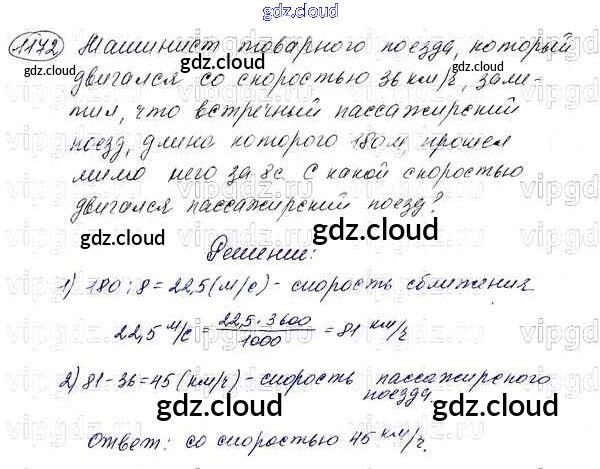 gdz.cloud
1172 Машинист товарного поезда, который
gdz.cloud gdz.cloud
двигался со скоростью 36 км/ч, заме-
тил, что встречный пассажирский
поезд, длина которого 180 м, прошел
мимо него за 8с. С какой скоростью
двигался пассажирский поезд?
gdz.cloud gdz.cloud
Решение:
1) 180 : 8 = 22,5 (м/с) - скорость сближения
22,5 м/с = 22,5 · 3600 / 1000 = 81 км/ч
2) 81 - 36 = 45 (км/ч) - скорость пассажирского
поезда.
gdz.cloud gdz.cloud
Ответ: со скоростью 45 км/ч.